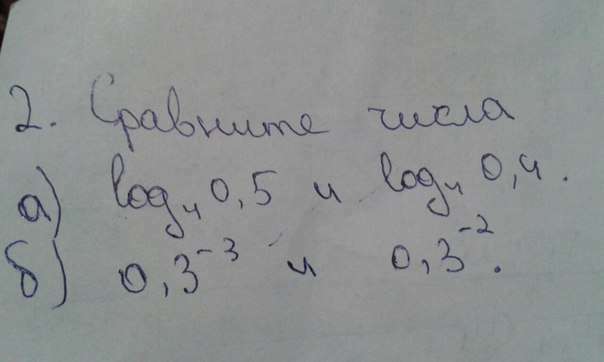 2. Сравните числа
а) log₄ 0,5 и log₄ 0,4.
б) 0,3⁻³ и 0,3⁻².